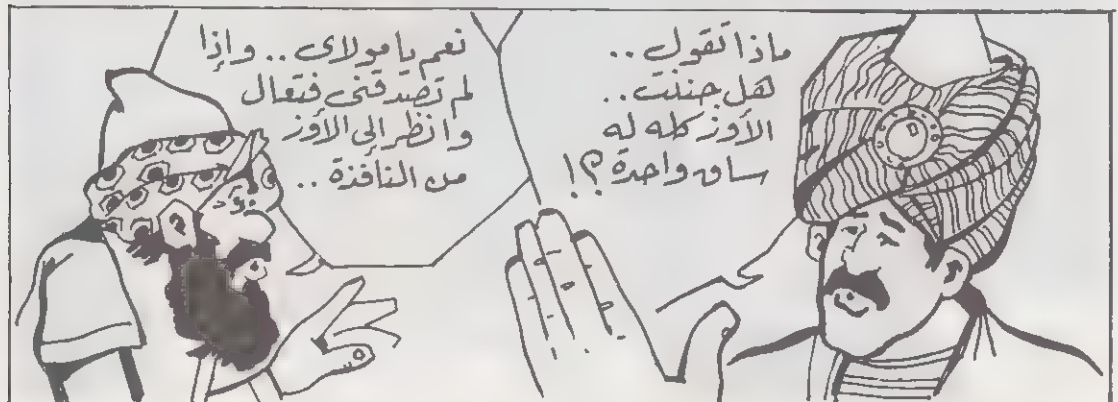 ماذا تقول ..
هل جننت ..
الأوز كله له
ساق واحدة ؟!
نعم يا مولاى .. وإذا
لم تصدقنى فتعال
وانظر إلى الأوز
من النافذة ..